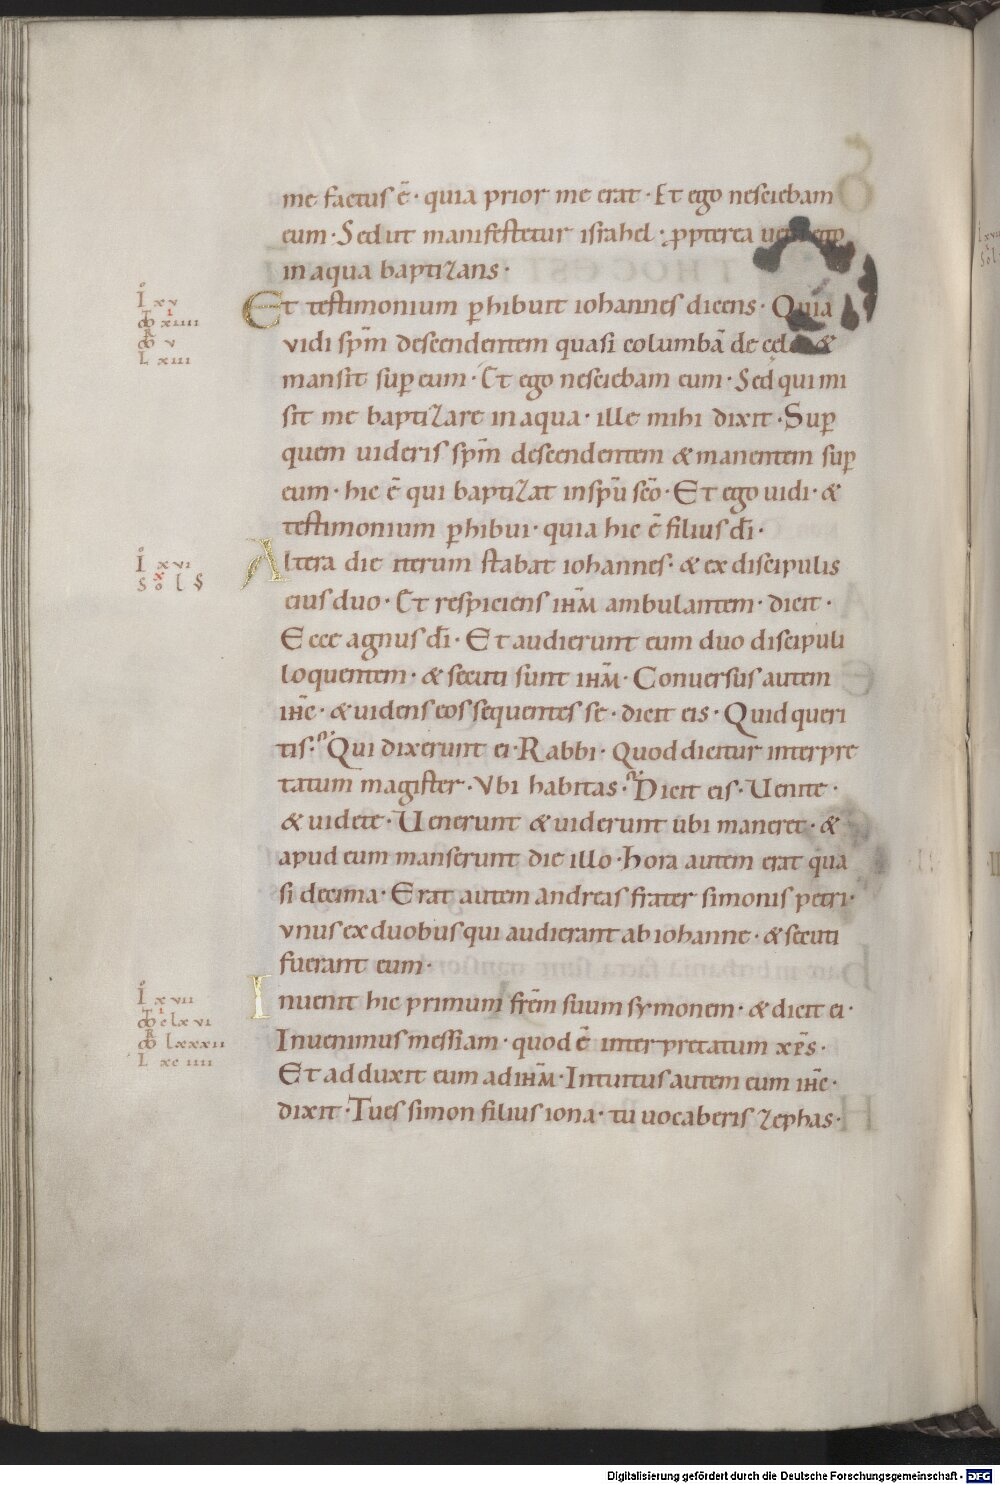 me factus ē · quia prior me erat · Et ego nesciebam
eum · Sed ut manifestetur israhel · ꝓpterea veni ego
in aqua baptizans ·
Et testimonium ꝑhibuit iohannes dicens · Quia
vidi spm̄ descendentem quasi columbā de celo &
mansit suꝑ eum · Et ego nesciebam eum · Sed qui mi
sit me baptizare in aqua · ille mihi dixit · Suꝑ
quem uideris spm̄ descendentem & manentem suꝑ
eum · hic ē qui baptizat in spū sc̄o · Et ego uidi · &
testimonium ꝑhibui · quia hic ē filius dī ·
Altera die iterum stabat iohannes · & ex discipulis
eius duo · Et respiciens ihm̄ ambulantem · dicit ·
Ecce agnus dī · Et audierunt eum duo discipuli
loquentem · & secuti sunt ihm̄ · Conuersus autem
ihc̄ · & uidens eos sequentes se · dicit eis · Quid queri
tis · Qui dixerunt ei · Rabbi · Quod dicitur interpre
tatum magister · Vbi habitas · Dicit eis · Uenite ·
& uidete · Uenerunt & uiderunt ubi maneret · &
apud eum manserunt die illo · hora autem erat qua
si decima · Erat autem andreas frater simonis petri ·
vnus ex duobus qui audierant ab iohanne · & secuti
fuerant eum ·
Inuenit hic primum frēm suum symonem · & dicit ei ·
Inuenimus messiam · quod ē interpretatum xp̄s ·
Et adduxit eum ad ihm̄ · Intuitus autem eum ihc̄ ·
dixit · Tu es simon filius iona · tu uocaberis zephas ·
I xv
xiiii
v
L xiii
I xvi
S o l S
I xvii
clxvi
lxxxii
L xciiii
Digitalisierung gefördert durch die Deutsche Forschungsgemeinschaft - DFG